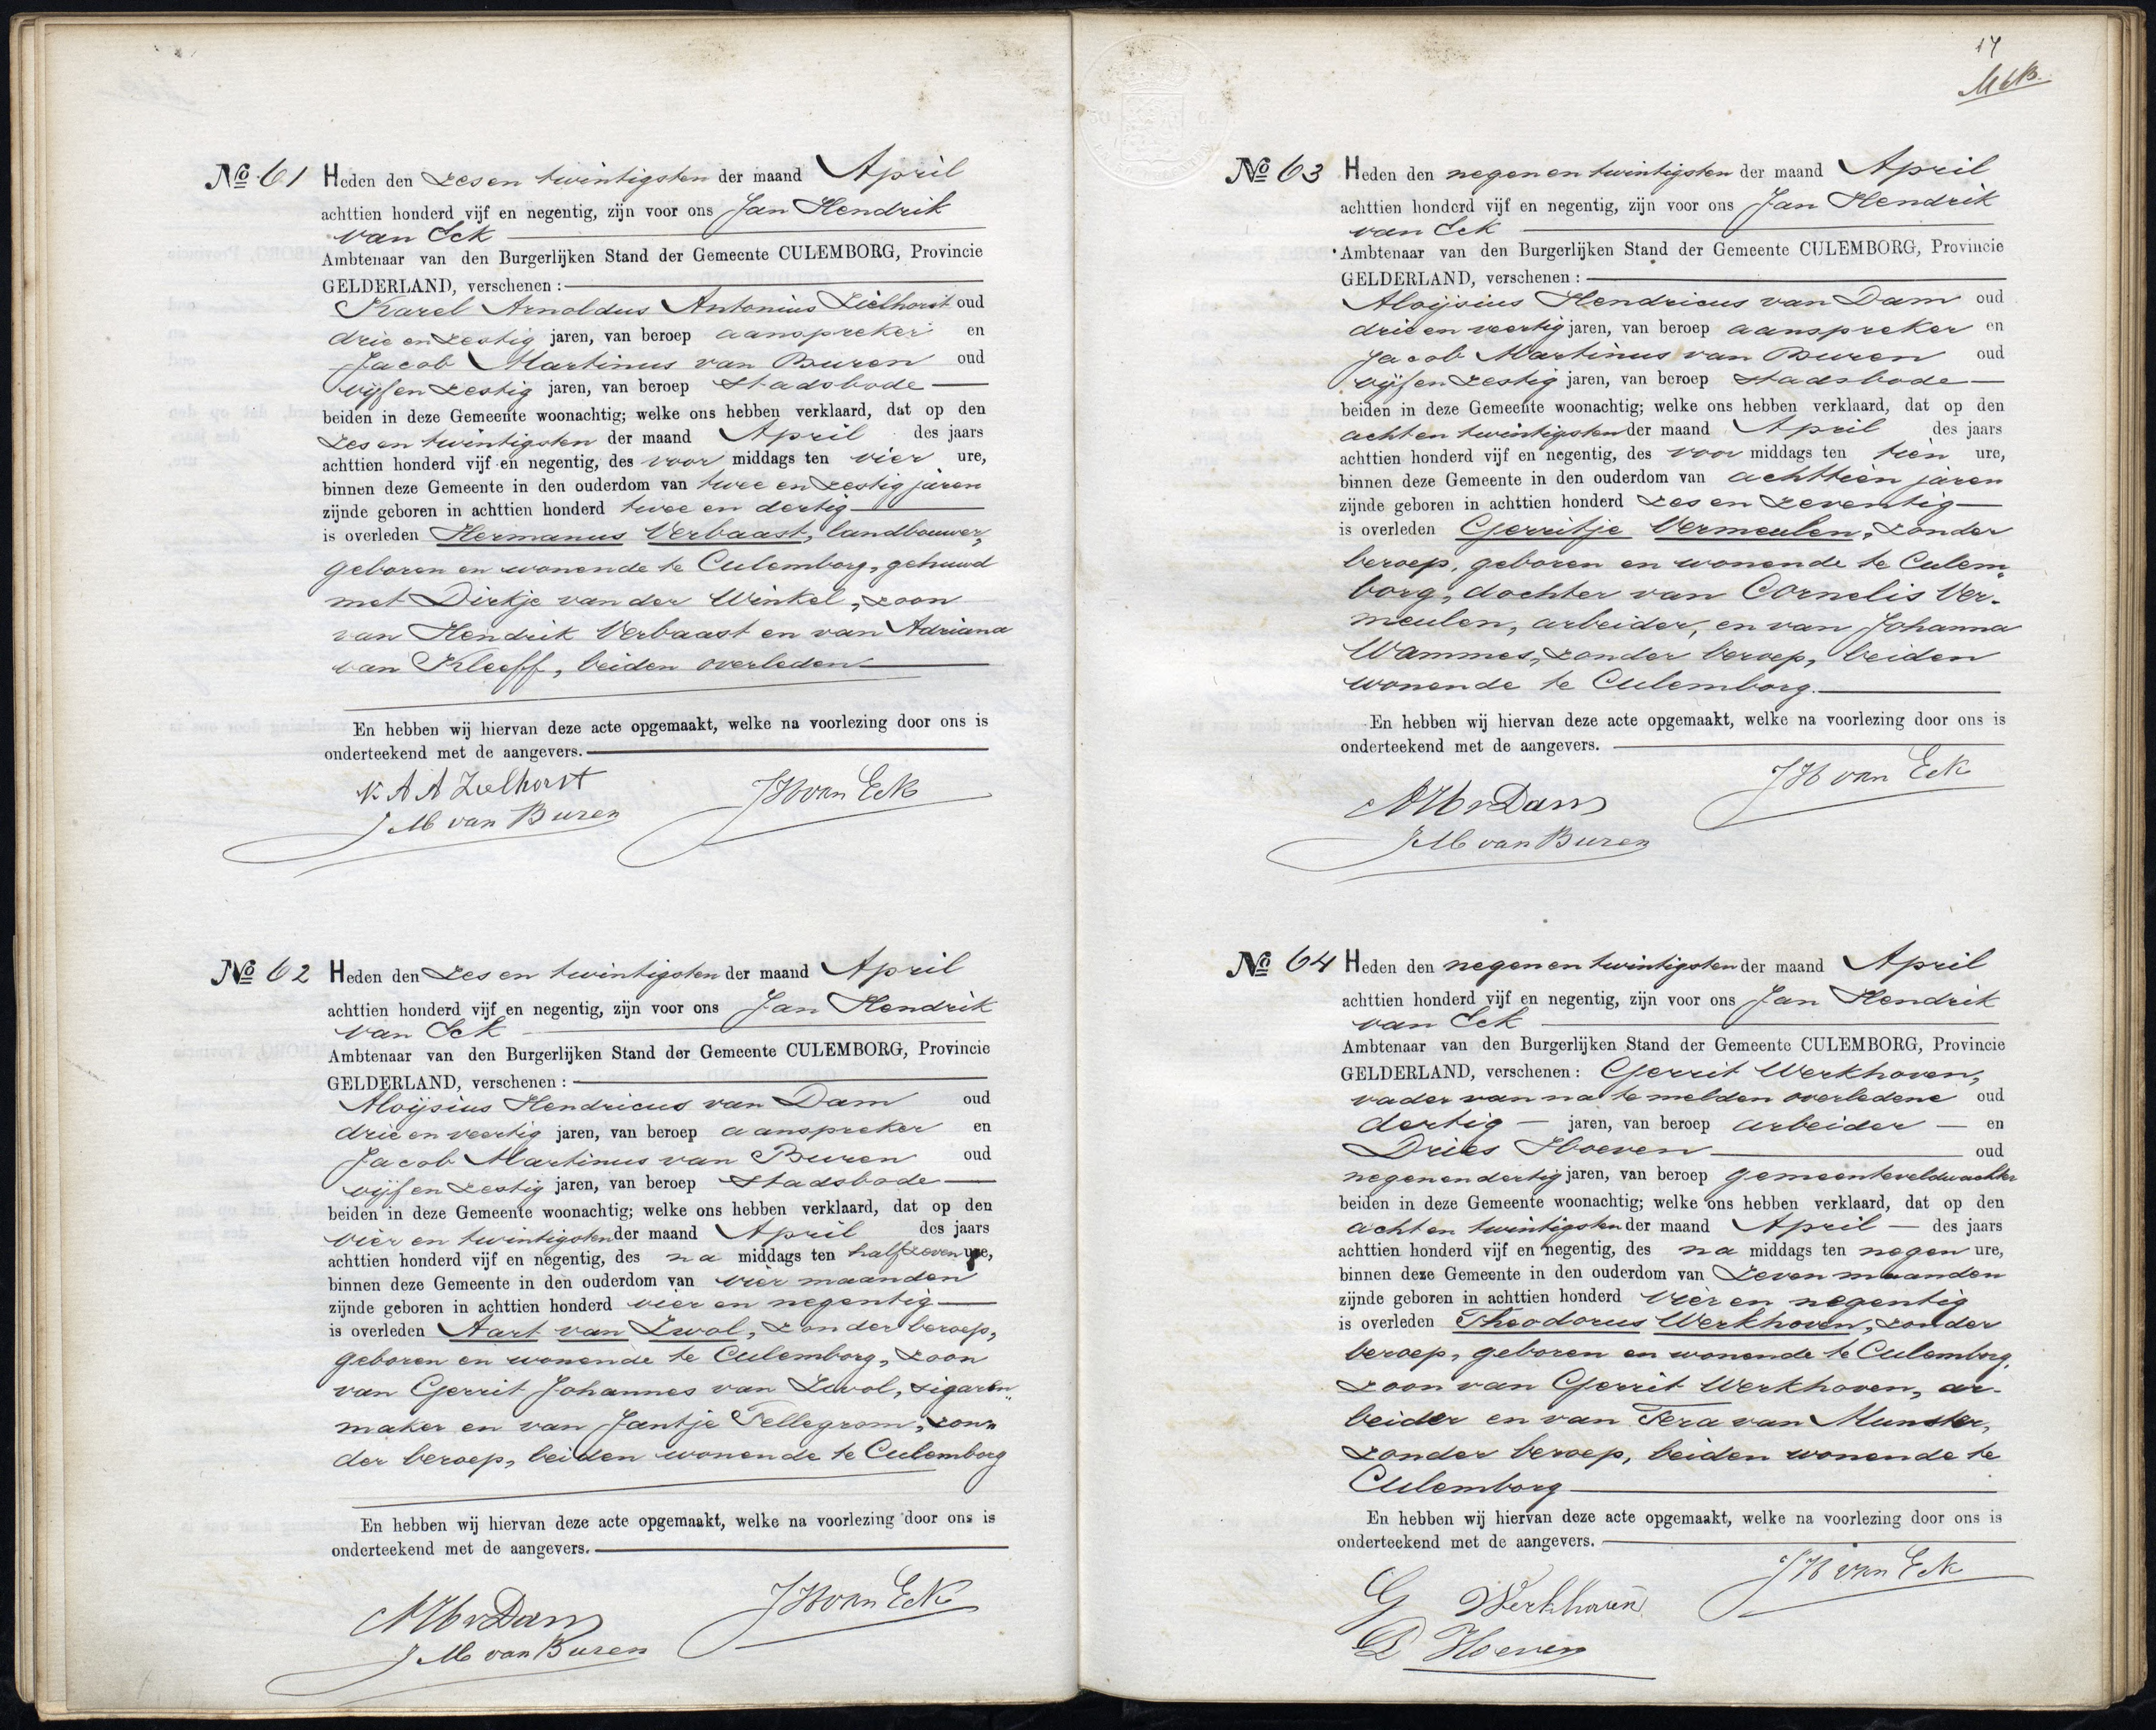 No. 61 Heden den zes en twintigsten der maand April
achttien honderd vijf en negentig, zijn voor ons Jan Hendrik
van Eck
Ambtenaar van den Burgerlijken Stand der Gemeente CULEMBORG, Provincie
GELDERLAND, verschenen:
Karel Arnoldus Antonius Zielhorst oud
drie en zestig jaren, van beroep aanspreker en
Jacob Martinus van Buren oud
vijf en zestig jaren, van beroep Stadsbode
beiden in deze Gemeente woonachtig; welke ons hebben verklaard, dat op den
zes en twintigsten der maand April des jaars
achttien honderd vijf en negentig, des voor middags ten vier ure,
binnen deze Gemeente in den ouderdom van twee en zestig jaren
zijnde geboren in achttien honderd twee en dertig
is overleden Hermanus Verbaast, landbouwer,
geboren en wonende te Culemborg, gehuwd
met Dirkje van der Winkel, zoon
van Hendrik Verbaast en van Adriana
van Kleeff, beiden overleden
En hebben wij hiervan deze acte opgemaakt, welke na voorlezing door ons is
onderteekend met de aangevers.
K A A Zielhorst JH van Eck
J M van Buren
No 62 Heden den zes en twintigsten der maand April
achttien honderd vijf en negentig, zijn voor ons Jan Hendrik
van Eck
Ambtenaar van den Burgerlijken Stand der Gemeente CULEMBORG, Provincie
GELDERLAND, verschenen:
Aloijsius Hendricus van Dam oud
drie en veertig jaren, van beroep aanspreker en
Jacob Martinus van Buren oud
vijf en zestig jaren, van beroep Stadsbode
beiden in deze Gemeente woonachtig; welke ons hebben verklaard, dat op den
vier en twintigsten der maand April des jaars
achttien honderd vijf en negentig, des na middags ten half zeven ure,
binnen deze Gemeente in den ouderdom van vier maanden
zijnde geboren in achttien honderd vier en negentig
is overleden Aart van Zwol, zonder beroep,
geboren en wonende te Culemborg, zoon
van Gerrit Johannes van Zwol, sigaren„
maker en van Jantje Tellegrom, zon„
der beroep, beiden wonende te Culemborg
En hebben wij hiervan deze acte opgemaakt, welke na voorlezing door ons is
onderteekend met de aangevers.
AH v Dam JH van Eck
J M van Buren
17
No 63 Heden den negen en twintigsten der maand April
achttien honderd vijf en negentig, zijn voor ons Jan Hendrik
van Eck
Ambtenaar van den Burgerlijken Stand der Gemeente CULEMBORG, Provincie
GELDERLAND, verschenen:
Aloijsius Hendricus van Dam oud
drie en veertig jaren, van beroep aanspreker en
Jacob Martinus van Buren oud
vijf en zestig jaren, van beroep Stadsbode
beiden in deze Gemeente woonachtig; welke ons hebben verklaard, dat op den
acht en twintigsten der maand April des jaars
achttien honderd vijf en negentig, des voor middags ten tien ure,
binnen deze Gemeente in den ouderdom van achttien jaren
zijnde geboren in achttien honderd zes en zeventig
is overleden Gerritje Vermeulen, zonder
beroep, geboren en wonende te Culem„
borg, dochter van Cornelis Ver-
meulen, arbeider, en van Johanna
Wammes, zonder beroep, beiden
wonende te Culemborg.
En hebben wij hiervan deze acte opgemaakt, welke na voorlezing door ons is
onderteekend met de aangevers.
JH van Eck
AH v Dam
J M van Buren
No 64 Heden den negen en twintigsten der maand April
achttien honderd vijf en negentig, zijn voor ons Jan Hendrik
van Eck
Ambtenaar van den Burgerlijken Stand der Gemeente CULEMBORG, Provincie
GELDERLAND, verschenen: Gerrit Werkhoven,
vader van na te melden overledene oud
dertig jaren, van beroep arbeider en
Dries Hoeven oud
negen en dertig jaren, van beroep gemeenteveldwachter
beiden in deze Gemeente woonachtig; welke ons hebben verklaard, dat op den
acht en twintigsten der maand April des jaars
achttien honderd vijf en negentig, des na middags ten negen ure,
binnen deze Gemeente in den ouderdom van zeven maanden
zijnde geboren in achttien honderd vier en negentig
is overleden Theodorus Werkhoven, zonder
beroep, geboren en wonende te Culemborg,
zoon van Gerrit Werkhoven, ar-
beider en van Tera van Munster,
zonder beroep, beiden wonende te
Culemborg
En hebben wij hiervan deze acte opgemaakt, welke na voorlezing door ons is
onderteekend met de aangevers.
JH van Eck
G Werkhoven
D Hoeven